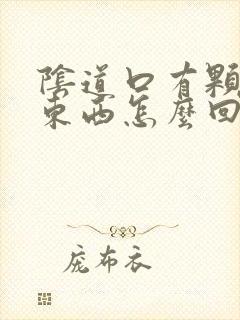 陰道口有顆
東西怎麼回
庞布衣